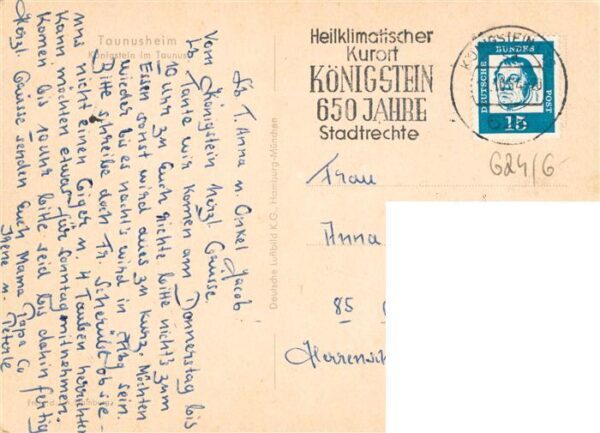 Taunusheim
Königstein im Taunus
Lb T. Anna u. Onkel Jacob.
Vom Königstein herzl. Grüsse.
Lb Tante wir komen am Donnerstag bis
10 Uhr zu Euch richte bitte nicht's zum
Essen sonst wird alles zu kurz. Möchten
wieder bis es nacht's wird in sein.
Bitte schreibe doch Fr ob sie
uns nicht einen u. 4 Tauben herrichten
kann möchten etwas für Sonntag mitnehmen.
Komen bis 10 Uhr bitte seid bis dahin fertig
Herzl. Grüsse senden Euch Mama Papa
Irene u.
Peterle
Deutsche Luftbild K.G., Hamburg-München
Heilklimatischer
Kurort
KÖNIGSTEIN
650 JAHRE
Stadtrechte
KÖNIGSTEIN
DEUTSCHE BUNDES POST
15
624/6-
Frau
Anna
85